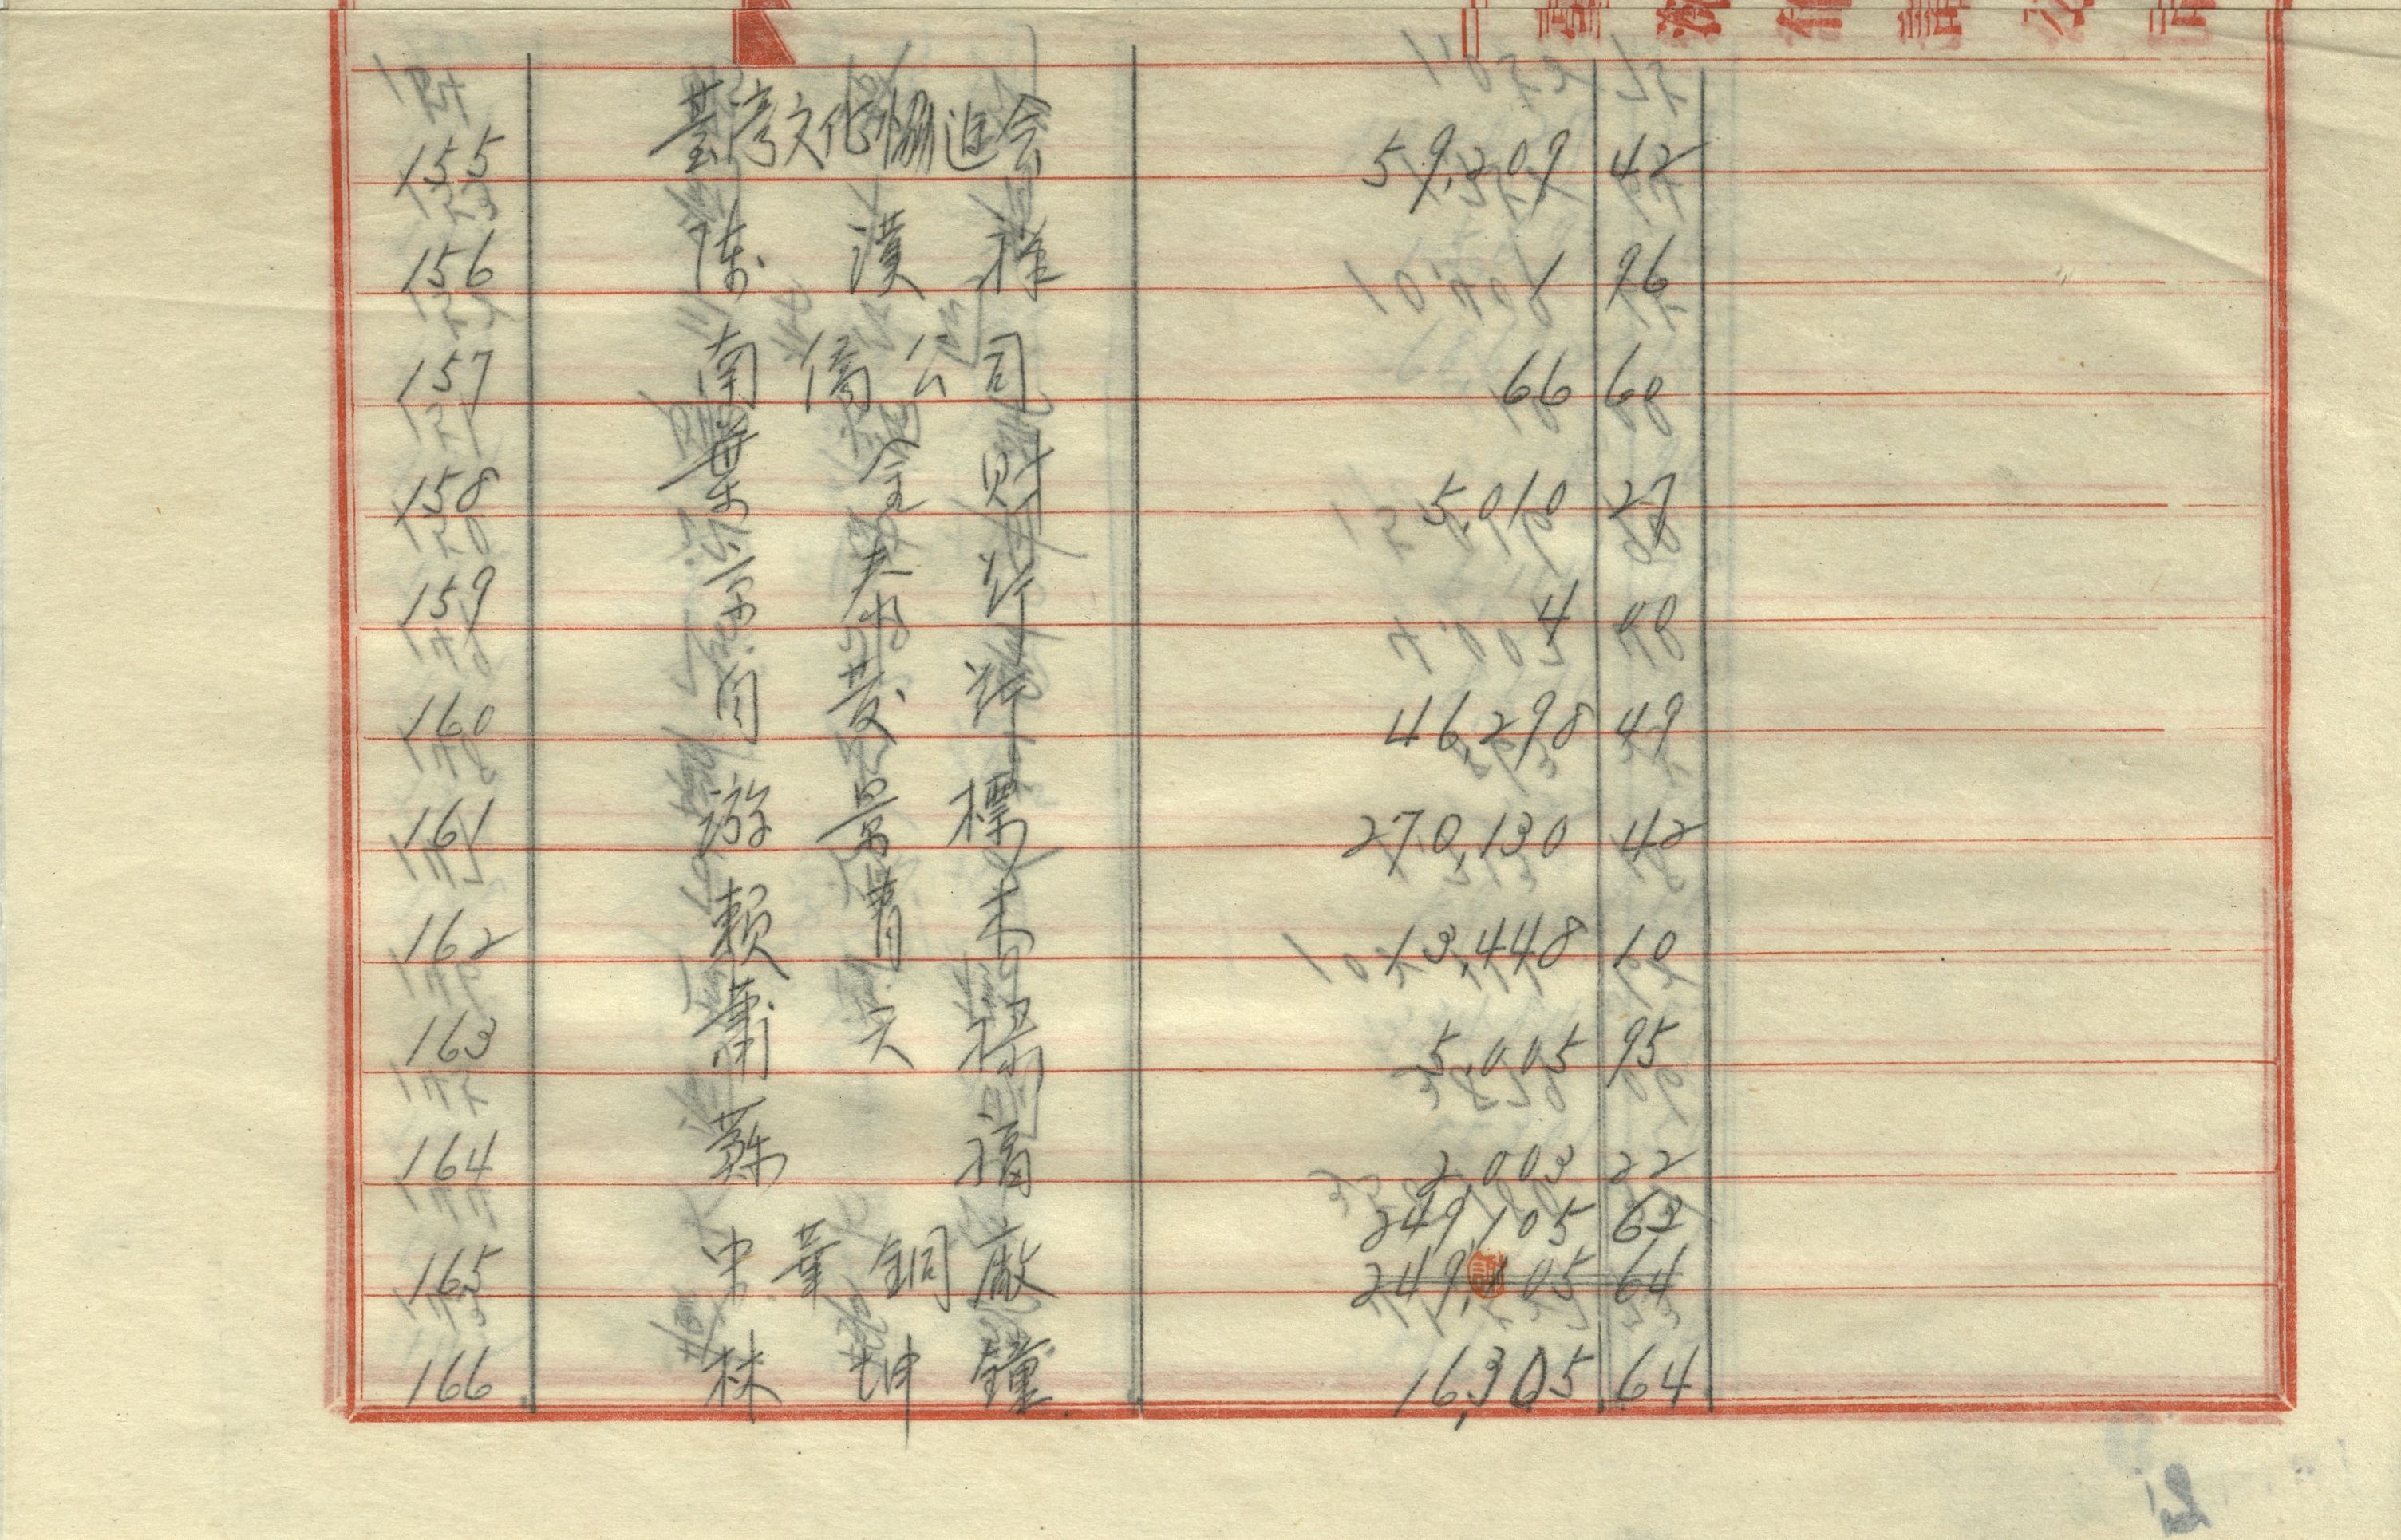 155 臺湾文化協進会 59,209 42
156 陳漢權 1 96
157 南僑公司 66 60
158 葉金財 5,010 27
159 京 行 4 00
160 自发 46,298 49
161 游景標 270,130 42
162 賴青木 13,448 10
163 蕭天 5,005 95
164 蘇福 2,003 22
249,105 63
165 中華銅廠 249,105 64
166 林坤鐘 16,305 64